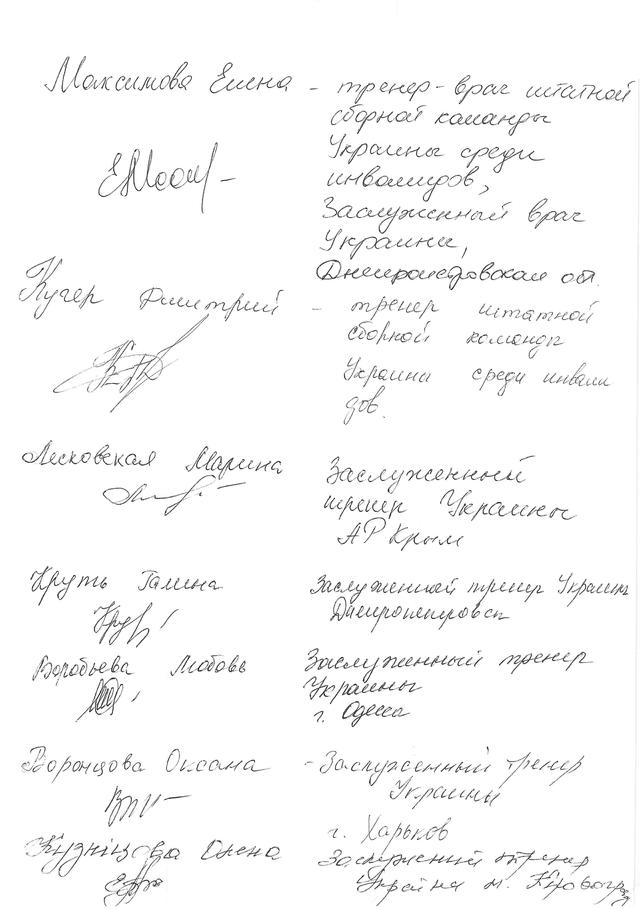 Максимова Елена – тренер-врач штатной
сборной команды
Украины среди
инвалидов,
Заслуженный врач
Украины,
Днепропетровская обл.
Кучер Дмитрий – тренер штатной
сборной команды
Украины среди инвали
дов.
Лесковская Марина Заслуженный
тренер Украины
АР Крым
Круть Галина Заслуженный тренер Украины
Днепропетровск
Воробьева Любовь Заслуженный тренер
Украины
г. Одесса
Воронцова Оксана – Заслуженный тренер
Украины
г. Харьков
Кузніцова Олена Заслуженный тренер
Україна м. Кіровоград